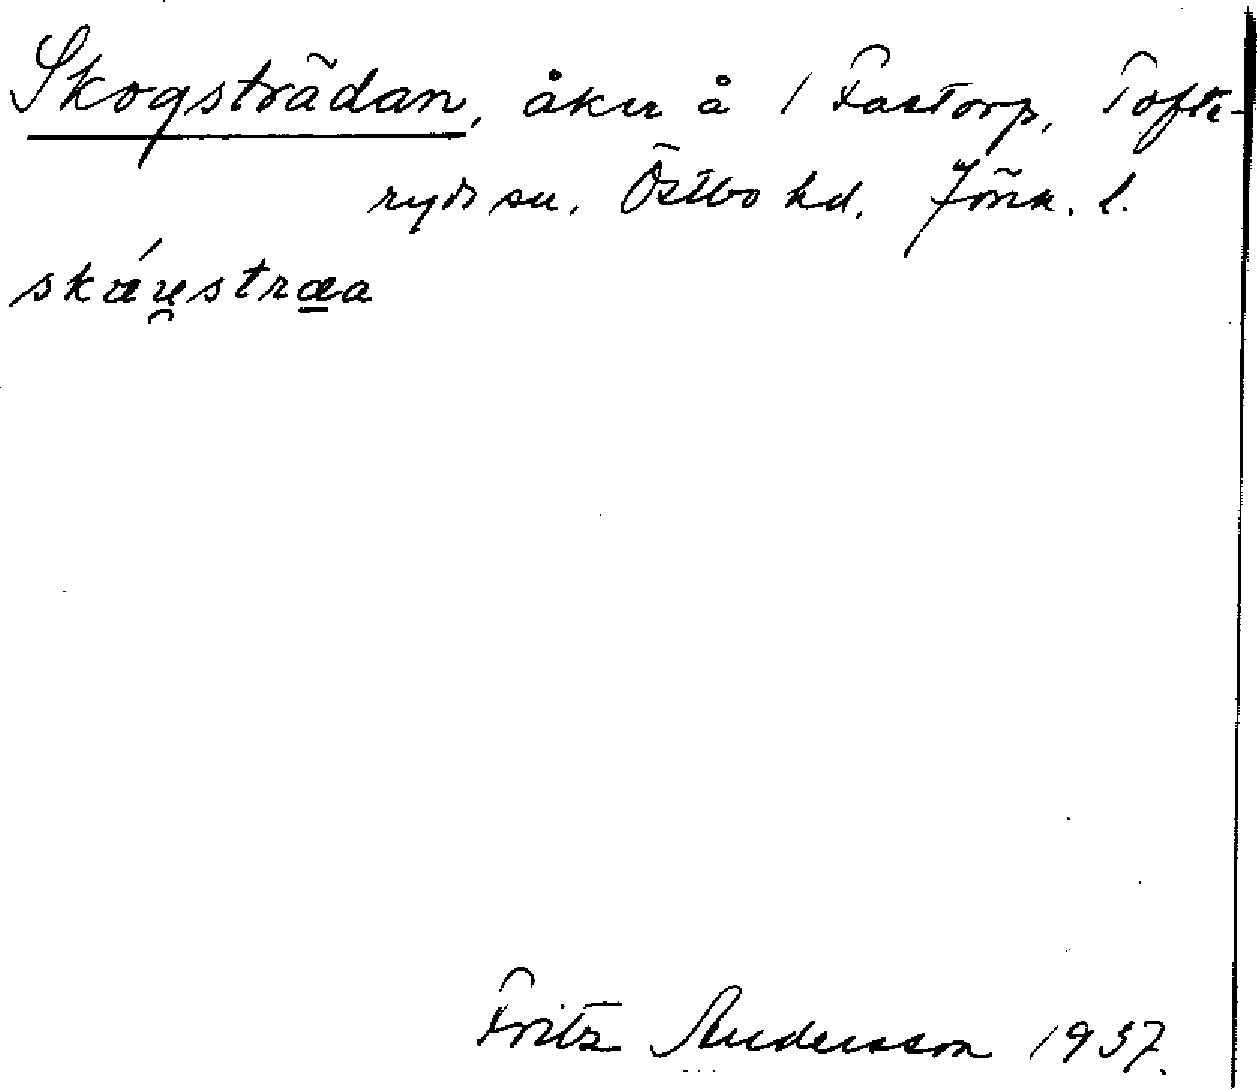 Skogsträdan, åker å 1 Fastorp, Tofte-
ryds sn. Östbo hd. Jönk. l.
skǽu̯stræ̱a
Fritz Andersson 1937.